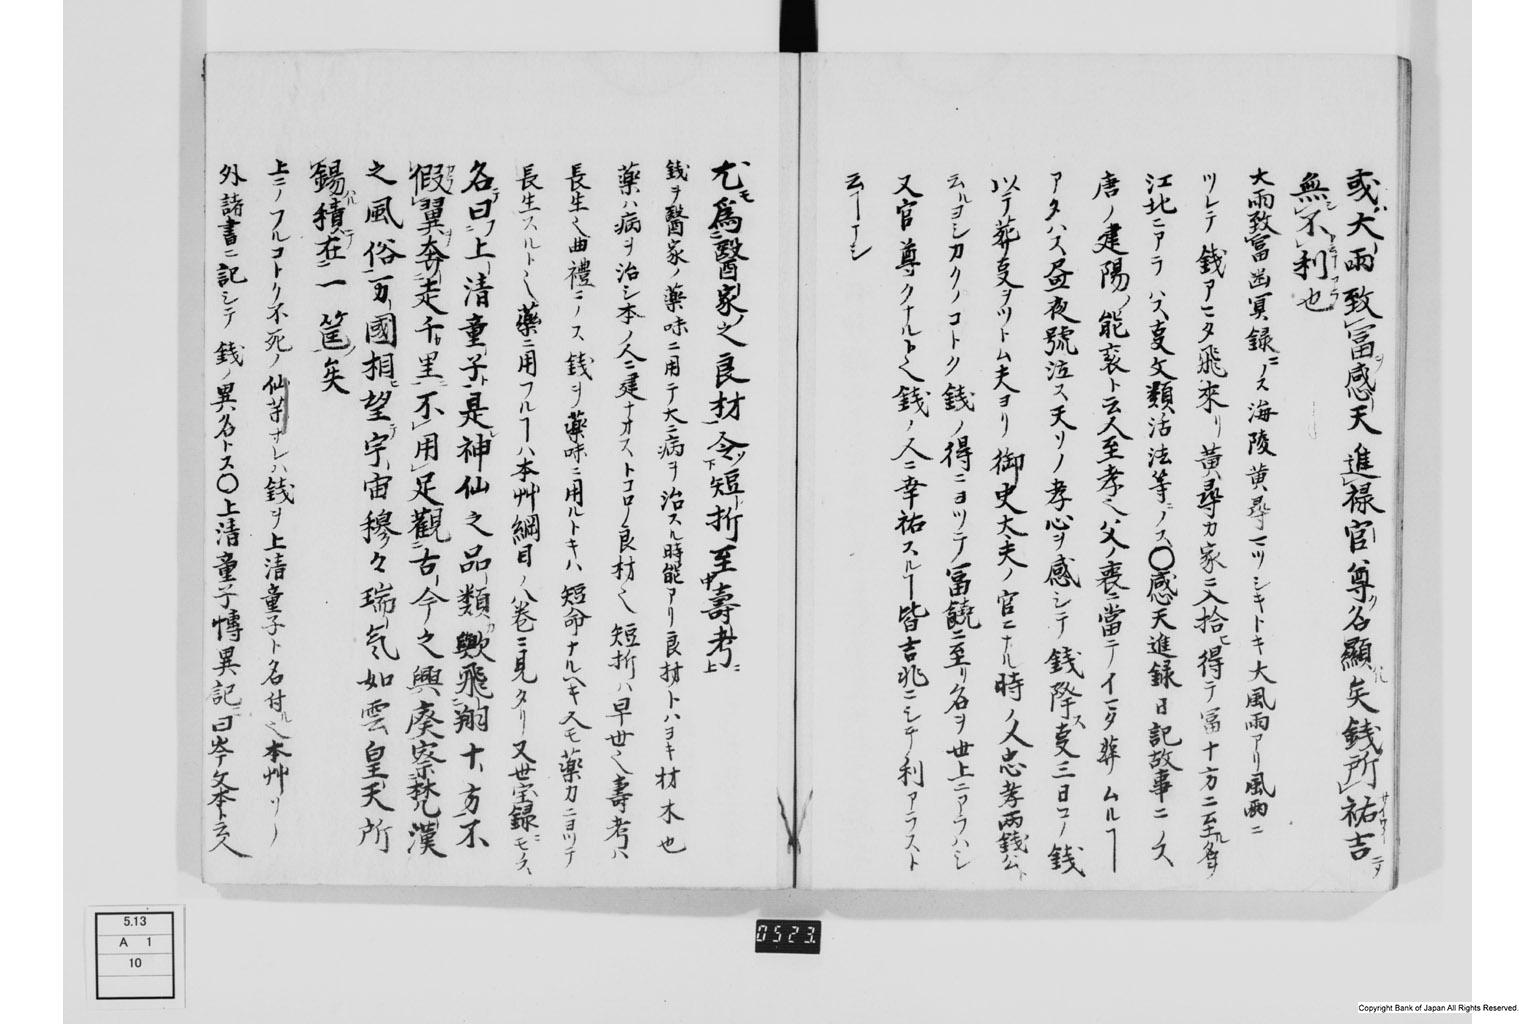 或大雨致冨感天進禄官尊名顯矣銭所祐吉
無不利也
大雨致冨幽冥録ニノス海陵黄尋マツシキトキ大風雨アリ風雨ニ
ツレテ銭アマタ飛来リ黄尋カ家ニ入拾得テ冨十方ニ至ル名ヲ
江北ニアラハス事文類活法等ニノス〇感天進録日記故事ニノス
唐ノ建陽ノ能袞ト云人至孝也父ノ喪ニ當テイマタ葬ムルヿ
アタハス昼夜號泣ス天ソノ孝心ヲ感シテ銭降ス事三日コノ銭
以テ葬事ヲツトム夫ヨリ御史大夫ノ官ニナル時ノ人忠孝両銭公ト
云ルヨシカクノコトク銭ノ得ニヨツテノ冨饒ニ至リ名ヲ世上ニアラハシ
又官尊クナルト也銭ノ人ニ幸祐スルヿ皆吉兆ニシテ利アラスト
云ヿナシ
尤為醫家之良材令短折至壽考
銭ヲ醫家ノ薬味ニ用テ大ニ病ヲ治スル時能アリ良材トハヨキ材木也
薬ハ病ヲ治シ本ノ人ニ建ナオストコロノ良材也短折ハ早世也壽考ハ
長生也曲禮ニノス銭ヲ薬味ニ用ルトキハ短命ナルヘキ人モ薬力ニヨツテ
長生スルト也薬ニ用フルヿハ本艸綱目ノ八巻ニ見タリ又世宝録ニモ
名曰上清童子是神仙之品類歟飛翔十方不
假翼奔走千里不用足觀古今之興廃察梵漢
之風俗万國相望宇宙穆々瑞気如雲皇天所
錫積在一筐矣
上ニノフルコトク不死ノ仙芽ナレハ銭ヲ上清童子ト名付ル也本艸ソノ
外諸書ニ記シテ銭ノ異名トス〇上清童子博異記ニ曰岑文本ト云人
5.13
A 1
10
0523.
Copyright Bank of Japan All Rights Reserved.